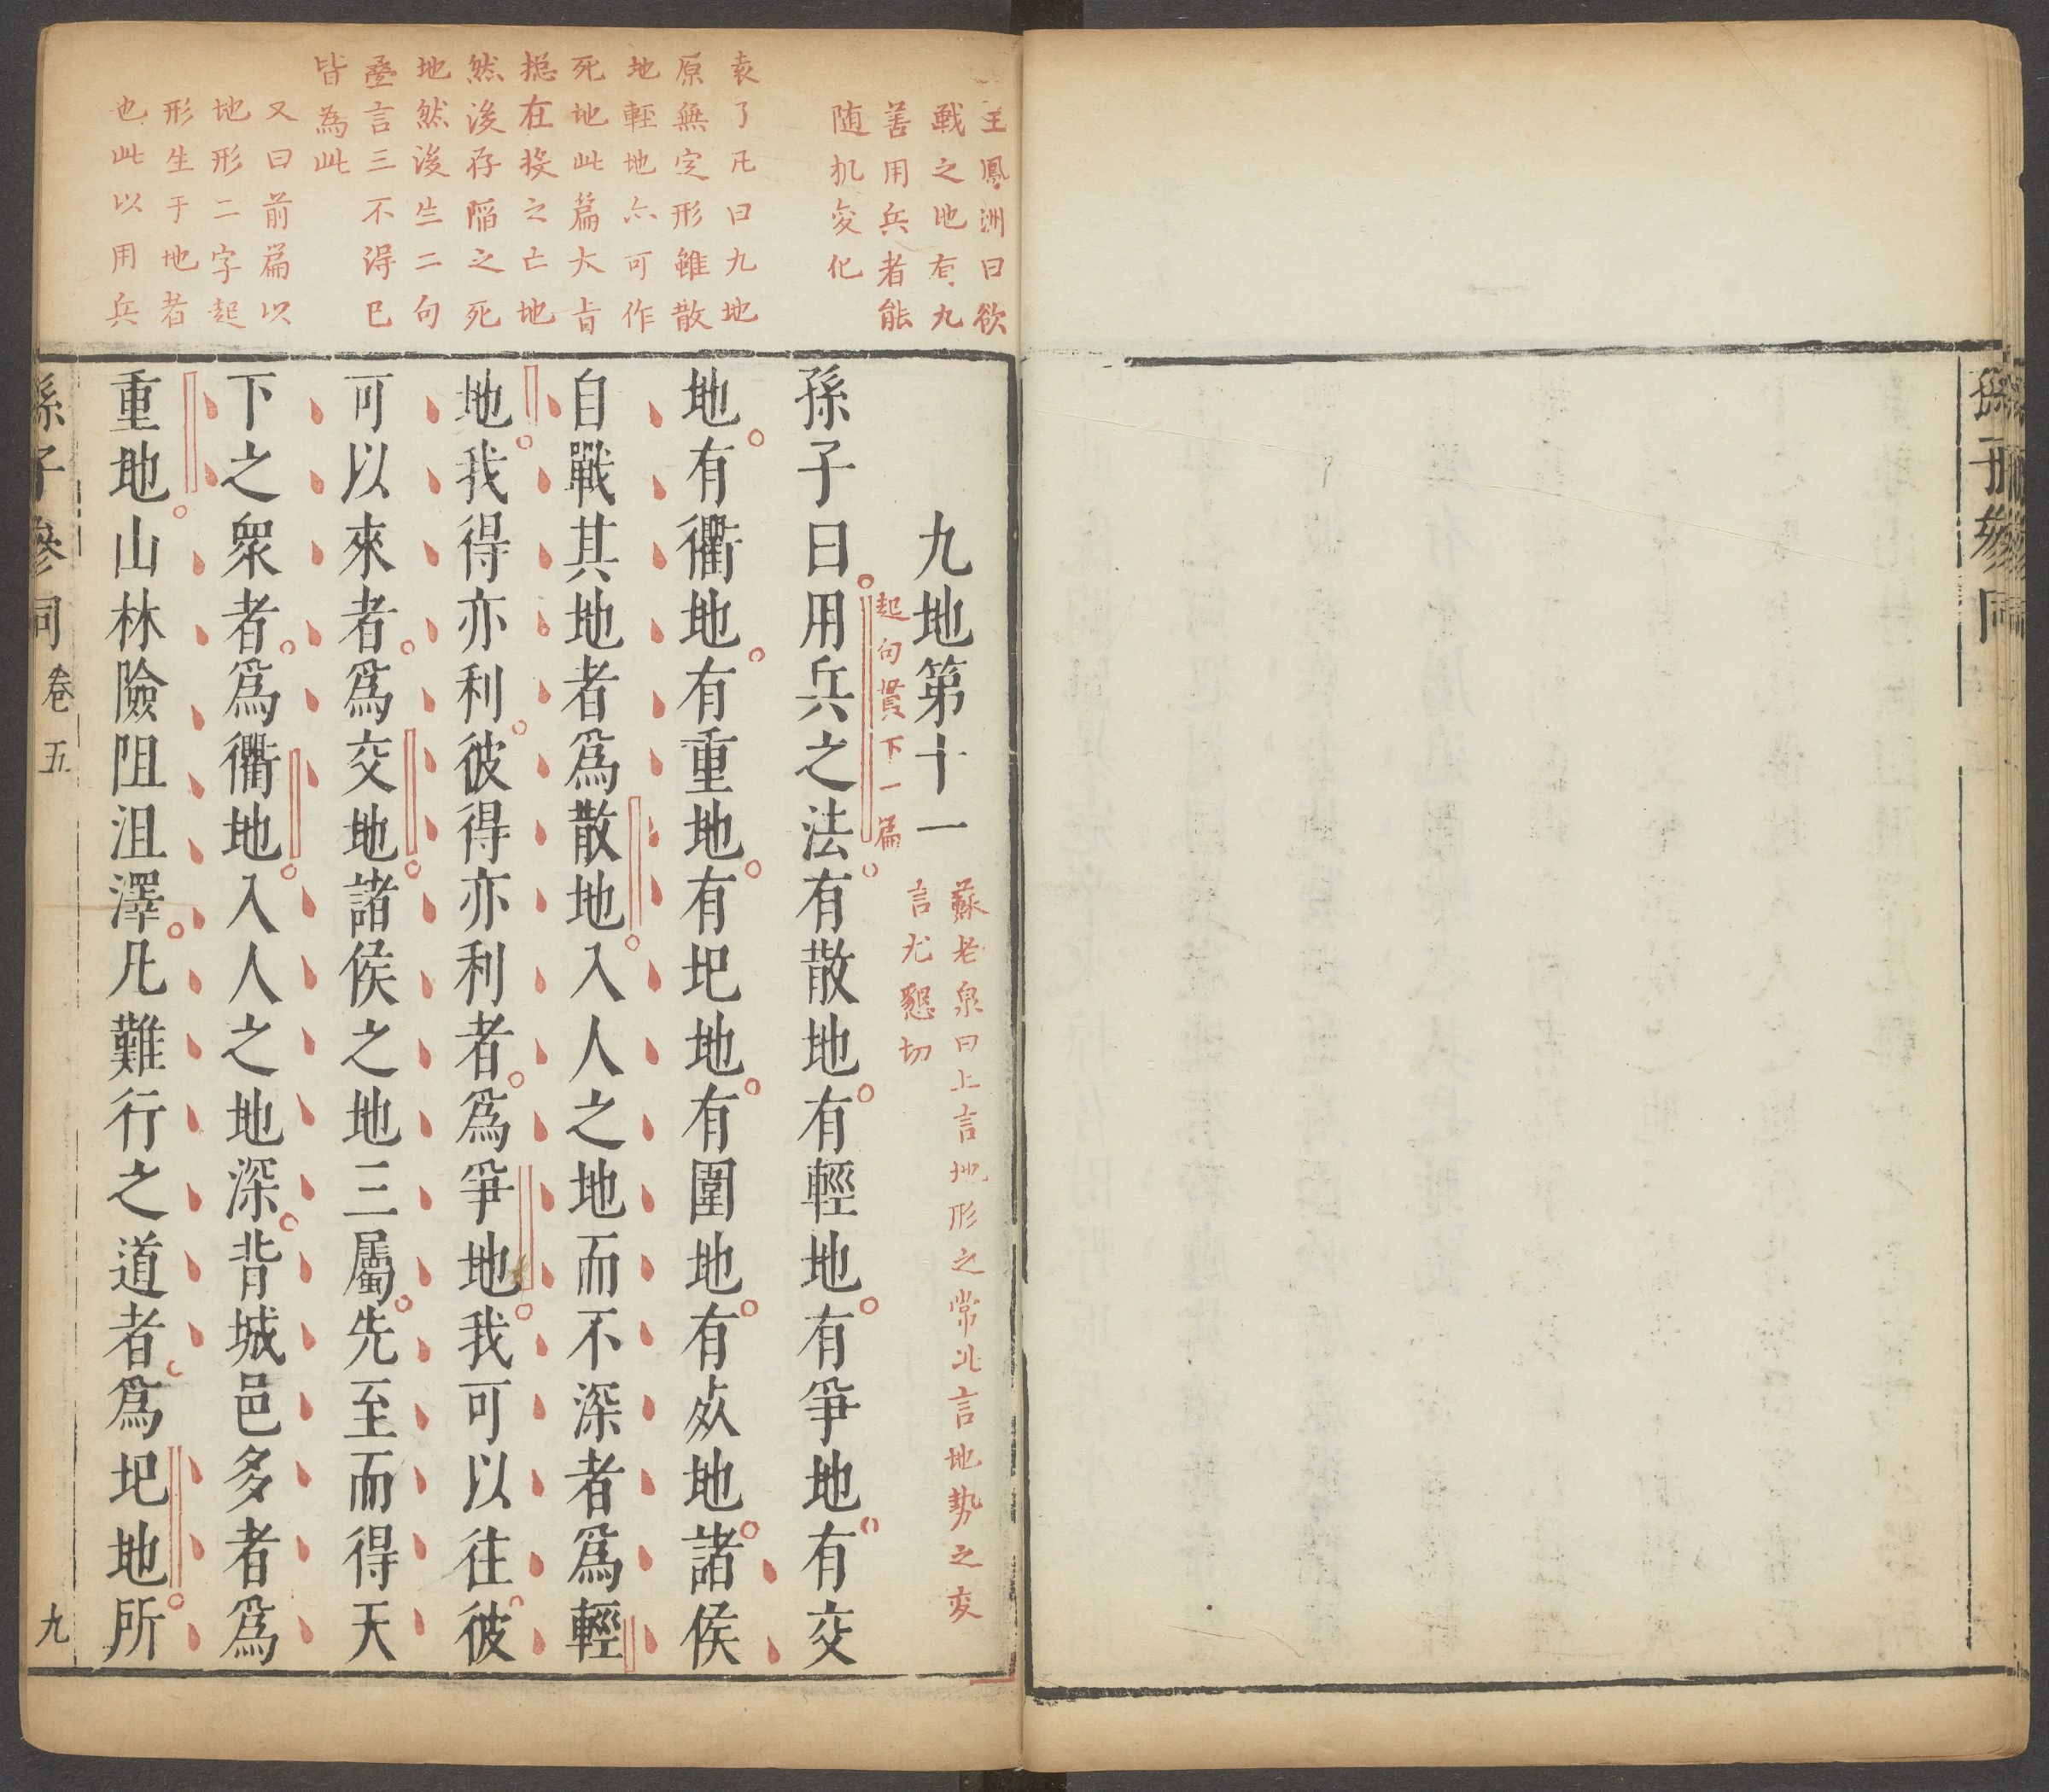 孫子參同
王鳳洲曰欲
戰之地有九
善用兵者能
随机变化
袁了凡曰九地
原無定形雖散
地輕地亦可作
死地此篇大旨
揔在投之亡地
然後存陷之死
地然後生二句
疊言三不得已
皆為此
又曰前篇以
地形二字起
形生于地者
也此以用兵
九地第十一
蘇老泉曰上言地形之常此言地势之变
言尤懇切
起句貫下一篇
孫子曰用兵之法有散地有輕地有爭地有交
地有衢地有重地有圯地有圍地有㚁地諸侯
自戰其地者爲散地入人之地而不深者爲輕
地我得亦利彼得亦利者爲爭地我可以往彼
可以來者爲交地諸侯之地三屬先至而得天
下之眾者爲衢地入人之地深背城邑多者爲
重地山林險阻沮澤凡難行之道者爲圯地所
孫子參同 卷五 九